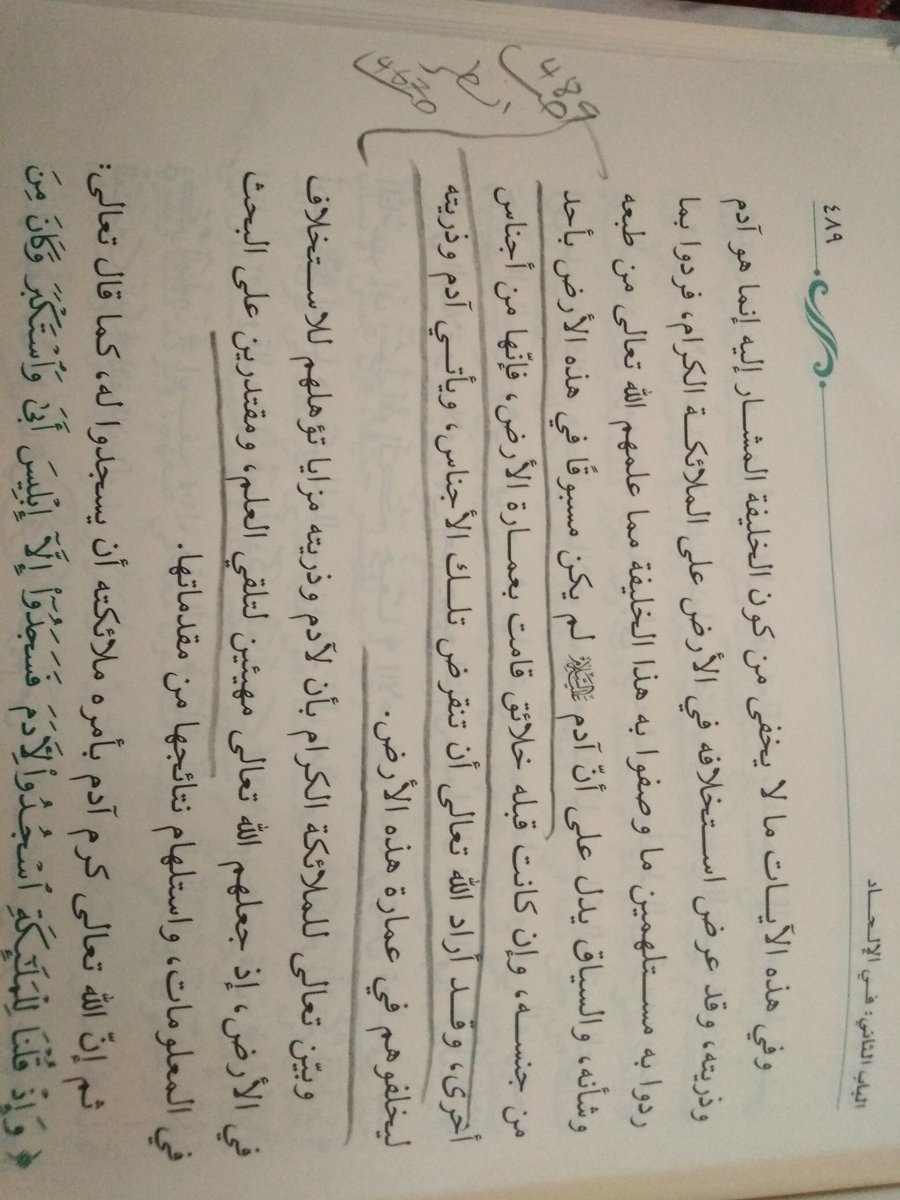 الباب الثاني: في الإلحاد
٤٨٩
وفي هذه الآيات ما لا يخفى من كون الخليفة المشار إليه إنما هو آدم
وذريته، وقد عرض استخلافه في الأرض على الملائكة الكرام، فردوا بما
ردوا به مستلهمين ما وصفوا به هذا الخليفة مما علمهم الله تعالى من طبعه
وشأنه، والسياق يدل على أنّ آدم ﵇ لم يكن مسبوقًا في هذه الأرض بأحد
من جنسه، وإن كانت قبله خلائق قامت بعمارة الأرض، فإنّها من أجناس
أخرى، وقد أراد الله تعالى أن تنقرض تلك الأجناس، ويأتي آدم وذريته
ليخلفوهم في عمارة هذه الأرض.
وبيّن تعالى للملائكة الكرام بأن لآدم وذريته مزايا تؤهلهم للاستخلاف
في الأرض، إذ جعلهم الله تعالى مهيئين لتلقي العلم، ومقتدرين على البحث
في المعلومات، واستلهام نتائجها من مقدماتها.
ثم إنّ الله تعالى كرم آدم بأمره ملائكته أن يسجدوا له، كما قال تعالى:
﴿ وَإِذْ قُلْنَا لِلْمَلَٰٓئِكَةِ ٱسْجُدُوا۟ لِـَٔادَمَ فَسَجَدُوٓا۟ إِلَّآ إِبْلِيسَ أَبَىٰ وَٱسْتَكْبَرَ وَكَانَ مِنَ
ص 489